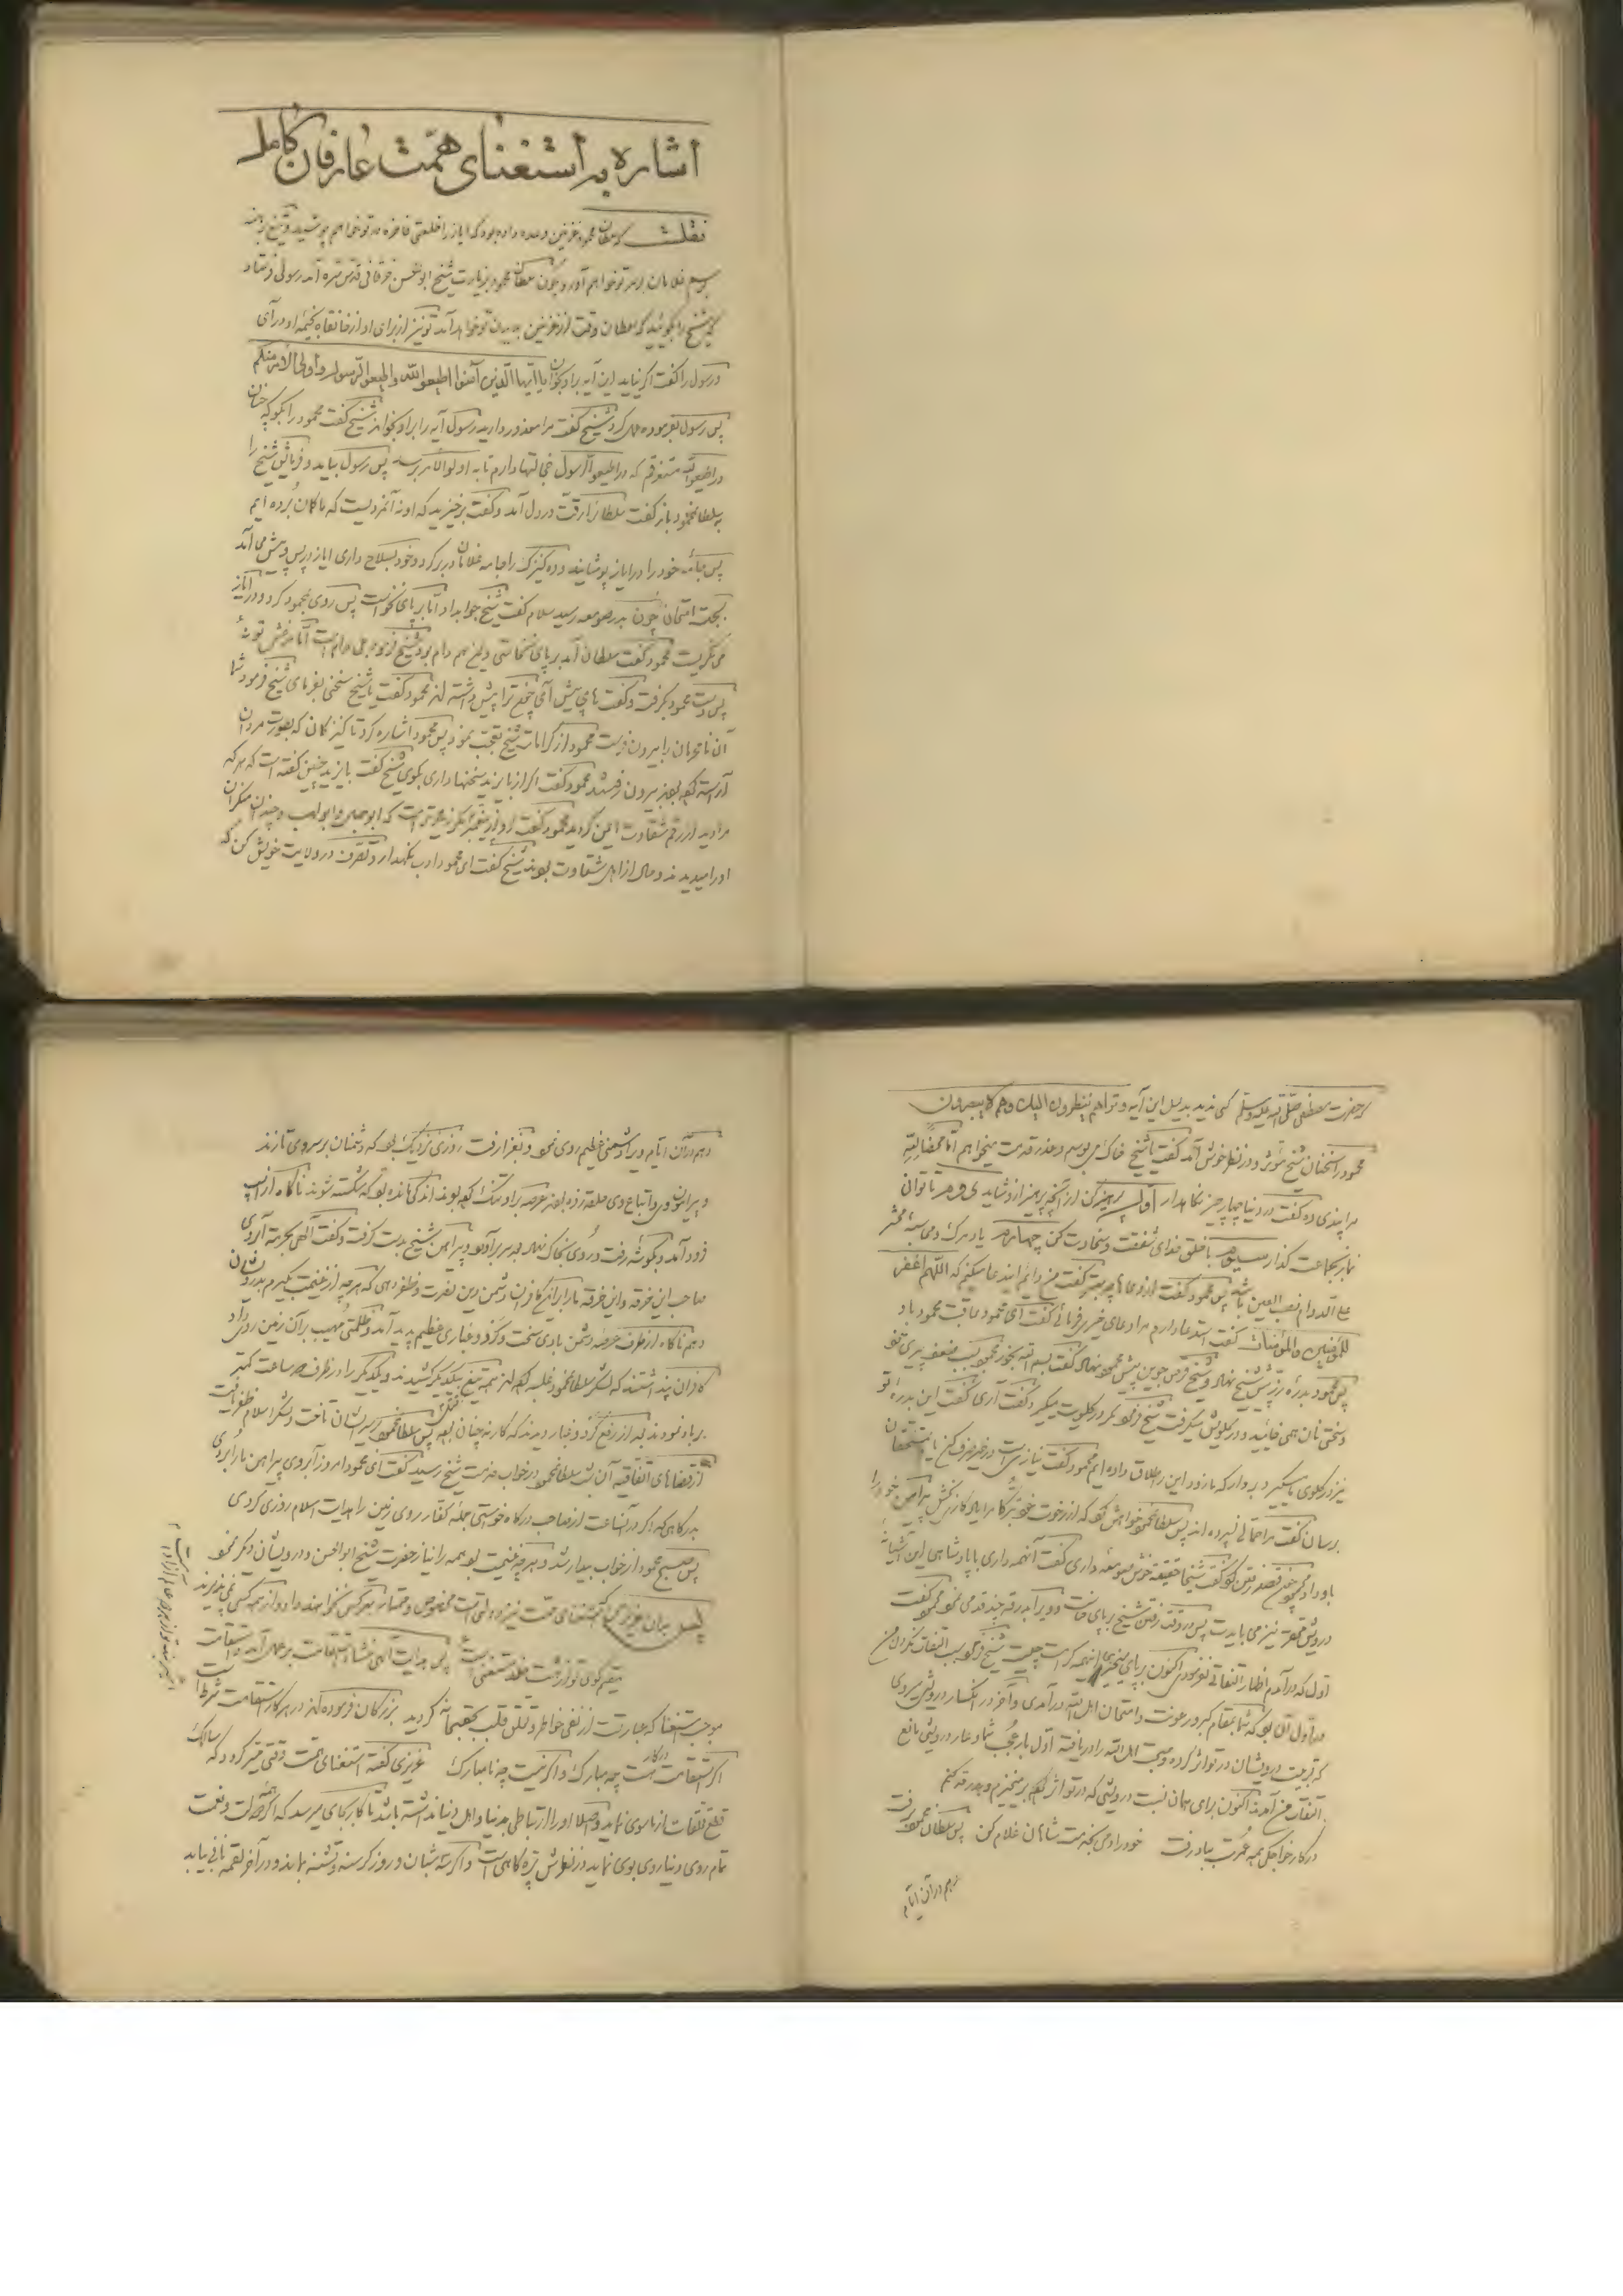 اشاره به استغنای همّت عارفان کامل
نقلست که سلطان محمود غزنین وعده داده بود که ایاز را خلعتی فاخره در تو خواهم پوشید و تیغ برهنه
برسم غلامان بر سر تو خواهم آورد و چون سلطان محمود بزیارت شیخ ابوالحسن خرقانی قدس سره آمد رسولی فرستاد
که شیخ را بگوئید که سلطان وقت از غزنین بدیدن تو خواهد آمد تو نیز از برای او از خانقاه بخیمه او درآی
و رسول را گفت اگر نیاید این آیه بر او بخوان یا ایها الذین آمنوا اطیعو الله و اطیعو الرسول و اولی الامر منکم
پس رسول بفرموده عمل کرد شیخ گفت مرا معذور دارید رسول آیه را بر او بخواند شیخ گفت محمود را بگو که چنان
در اطیعو الله مستغرقم که در اطیعو الرسول خجالتها دارم تا به اولو الامر برسد پس رسول بیامد و فرمایش شیخ را
به سلطان محمود باز گفت سلطانرا رقت در دل آمد و گفت برخیزید که او نه آنمردیست که ما گمان برده ایم
پس جامه خود را در ایاز پوشانید و ده کنیزک را جامه غلامان در بر کرد و خود بسلاح داری ایاز در پس و پیش می آمد
بجهت امتحان چون بدر صومعه رسید سلام گفت شیخ جواب داد امّا بر پای نخواست پس روی بمحمود کرد و در ایاز
می نگریست محمود گفت سلطان آمد بر پای نخاستی و این هم دام بود شیخ فرمود بلی دام است امّا مرغش تو نۀ
پس دست محمود بگرفت و گفت تا می پیش آی چون ترا پیش داشته اند محمود گفت یا شیخ سخنی بفرمای شیخ فرمود شما
آن نامحرمان را بیرون فرست محمود از کرامات شیخ تعجب نمود پس محمود اشاره کرد تا کنیزکان که بصورت مردان
آراسته بودند بیرون رفتند محمود گفت اگر از بایزید سخنها داری بگوی شیخ گفت بایزید چنین گفته است که هر که
مرا دید از رقم شقاوت ایمن گردید محمود گفت او از پیغمبر بزرگتر است که ابوجهل و ابولهب و چندان منکران
او را میدیدند و حال از اهل شقاوت بودند شیخ گفت ای محمود ادب نگهدار و تصرّف در ولایت خویش کن که
که حضرت مصطفی صلی الله علیه وسلم کسی ندید بدلیل این آیه و تراهم ینظرون الیک و هم لا یبصرون
محمود را سخنان شیخ مؤثر و در نظر خوش آمد گفت یا شیخ خاک می بوسم و عذر قدمت میخواهم امّا محضاً لله
مرا پندی ده گفت در دنیا چهار چیز نگاهدار اوّل پرهیز کن از آنچه پرهیز از او شاید دوم تا توان
نماز بجماعت گذار سیوم با خلق خدای شفقت و سخاوت کن چهارم یاد مرگ و محاسبه محشر
علی الدوام نصب العین باشد پس محمود گفت از دعا گفت من دایم این دعا میکنم که اللهم اغفر
للمؤمنین والمؤمنات گفت استدعا دارم مرا دعای خیری فرمائی گفت ای محمود عاقبت محمود باد
پس محمود بدرۀ زر پیش شیخ نهاد و شیخ قرص جوین پیش محمود نهاد گفت بسم الله بخور محمود بسبب ضعف پیری
و سختی نان همی خائید و در گلویش میگرفت شیخ فرمود مگر در گلویت میگیرد گفت آری گفت این بدره زر تو
نیز در گلوی ما میگیرد بردار که ما زر و این را طلاق داده ایم محمود گفت نیازی است در خیر صرف کن یا بمستحقان
برسان گفت مرا حمّالی نسپرده اند پس سلطان محمود خواهش نمود که از رخوت خود تبرّکا مرا یادگاری بخش پیراهن خود را
باو داد محمود چون قصد رفتن نمود گفت شیخا حقیقة خوش صومعۀ داری گفت آنهمه داری با پادشاهی این آشیانۀ
درویش محقر نیز می بایدت پس در وقت رفتن شیخ بر پای خاست و ویرا بدرقه چند قدمی نمود محمود گفت
اول که درآمدم اظهار التفاتی نفرمودی اکنون بر پای میخیزی اینهمه کرامت چیست شیخ فرمود سبب التفات نکردن من
در اول آن بود که شما بمقام کبر و رعونت و امتحان اهل الله درآمدی و آخر در انکسار درویشی میروی
که تربیت درویشان در تو اثر کرده و صحبت اهل الله را دریافتۀ اول بار عجب شما و عار درویشی مانع
التفات من آمدند اکنون برای همان نسبت درویشی که در تو اثر کرده برمیخیزم و بدرقه میکنم
در کار خواجگی همه عمرت بباد رفت خود را دمی بخدمت شاهان غلام کن پس سلطان محمود برفت
و هم در آن ایّام
و هم در آن ایّام ویرا دشمنی عظیم روی نمود و بغزا رفت روزی نزدیک بود که دشمنان بر سر وی تازند
و پیرامون وی و اتباع وی حلقه زده بودند عرصه بر او تنگ کرده بودند اندکی مانده بود که شکسته شوند ناگاه از اسب
فرود آمد و بگوشه رفت و روی بخاک نهاد بعد سر برآورد و پیراهن شیخ بدست گرفت و گفت الهی بحرمت آبروی
صاحب این خرقه و این خرقه ما را بر این کافران و دشمن دین نصرت و ظفر دهی که هر چه از غنیمت بگیرم بدرویشان
دهم ناگاه از طرف عرصه دشمن بادی سخت و گرد و غباری عظیم پدید آمد و ظلمتی مهیب بر آن زمین روی داد
کافران پنداشتند که لشکر سلطان محمود غلبه کرده اند همه تیغ بیکدیگر کشیدند و یکدیگر را در ظرف ساعت کمتر
برباد نمودند بعد از رفع گرد و غبار دیدند که کار نه چنان بود پس سلطان محمود بر سر ایشان تاخت و لشکر اسلام ظفر یافت
از قضای اتفاقیه آن شب سلطان محمود در خواب خدمت شیخ رسید گفت ای محمود امروز آبروی پیراهن ما را بردی
بدرگاهی که اگر در آنساعت از صاحب درگاه خواستی جمله کفار روی زمین را هدایت اسلام روزی کردی
پس صبح محمود از خواب بیدار شد و هر چه غنیمت بود همه را نیاز حضرت شیخ ابوالحسن و درویشان دیگر نمود
پس بدان عزیز من که استغنای همّت نیز دولتی است مخصوص و ممتاز بهر کس نخواهند داد و از همه کس نمی پذیرند
مقیم کوی تو از هشت خلد مستغنی است پس هدایت الهی منشاء استقامت بر عمل آمد و استقامت
موجب استغنا که عبارت از نفی خواطر و تعلق قلب جمعیتاً گردید بزرگان فرموده اند در هر کار استقامت شرط است
اگر استقامت هست چه مبارک و اگر نیست چه نامبارک عزیزی گفته استغنای همّت وقتی میّسر گردد که سالک
قطع تعلقات از ماسوی نماید و اصلا او را ارتباطی بدنیا و اهل دنیا نداشته باشد تا کار بجای میرسد که اگر همه دولت و نعمت
تمام روی دنیا روی بوی نماید در نظرش پّره کاهی است و اگر سه شبان و روز گرسنه و تشنه بماند و در آخر لقمه نانی بیابد
اسیر بند تو از هر دو عالم آزاد است